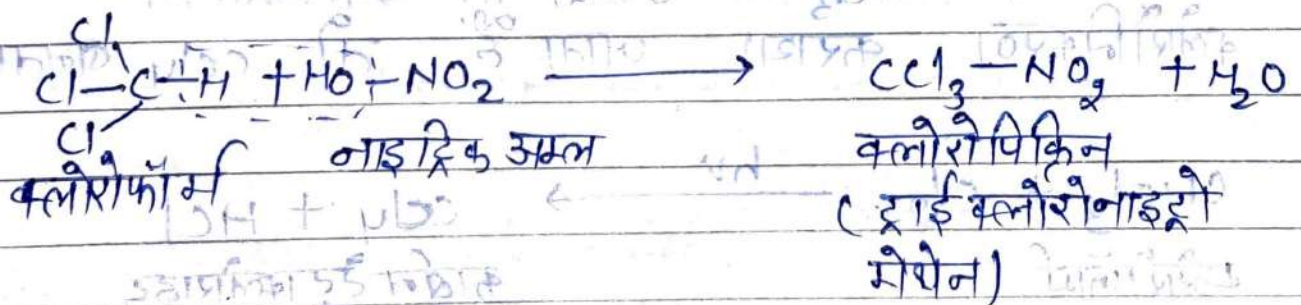 Cl
Cl—C—H + HO—NO₂ ⟶ CCl₃—NO₂ + H₂O
Cl
क्लोरोफॉर्म नाइट्रिक अम्ल क्लोरोपिक्रिन
( ट्राई क्लोरोनाइट्रो
मेथेन)